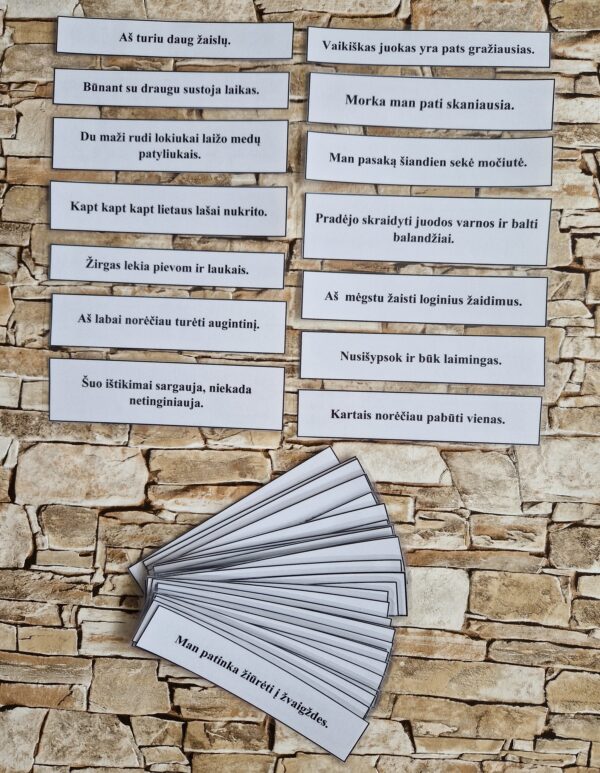 Aš turiu daug žaislų.
Būnant su draugu sustoja laikas.
Du maži rudi lokiukai laižo medų
patyliukais.
Kapt kapt kapt lietaus lašai nukrito.
Žirgas lekia pievom ir laukais.
Aš labai norėčiau turėti augintinį.
Šuo ištikimai sargauja, niekada
netinginiauja.
Vaikiškas juokas yra pats gražiausias.
Morka man pati skaniausia.
Man pasaką šiandien sekė močiutė.
Pradėjo skraidyti juodos varnos ir balti
balandžiai.
Aš  mėgstu žaisti loginius žaidimus.
Nusišypsok ir būk laimingas.
Kartais norėčiau pabūti vienas.
Man patinka žiūrėti į žvaigždes.